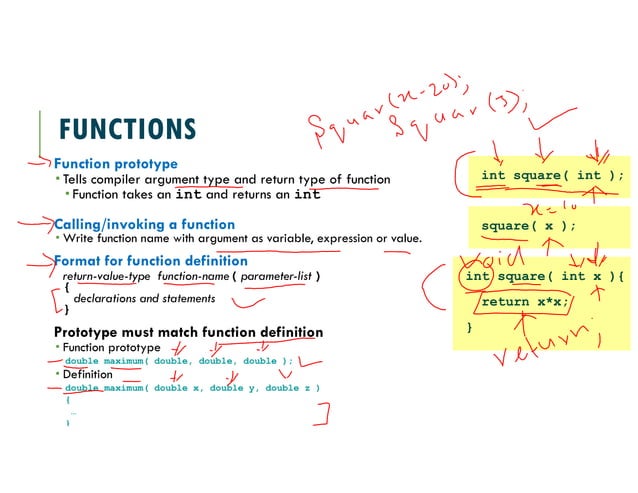 Squar(x-20);
Squar(3);
FUNCTIONS
Function prototype
• Tells compiler argument type and return type of function
• Function takes an int and returns an int
Calling/invoking a function
• Write function name with argument as variable, expression or value.
Format for function definition
return-value-type function-name ( parameter-list )
{
declarations and statements
}
Prototype must match function definition
• Function prototype
double maximum( double, double, double );
• Definition
double maximum( double x, double y, double z )
{
…
}
int square( int );
x=10
square( x );
void
int square( int x ){
return x*x;
}
return;